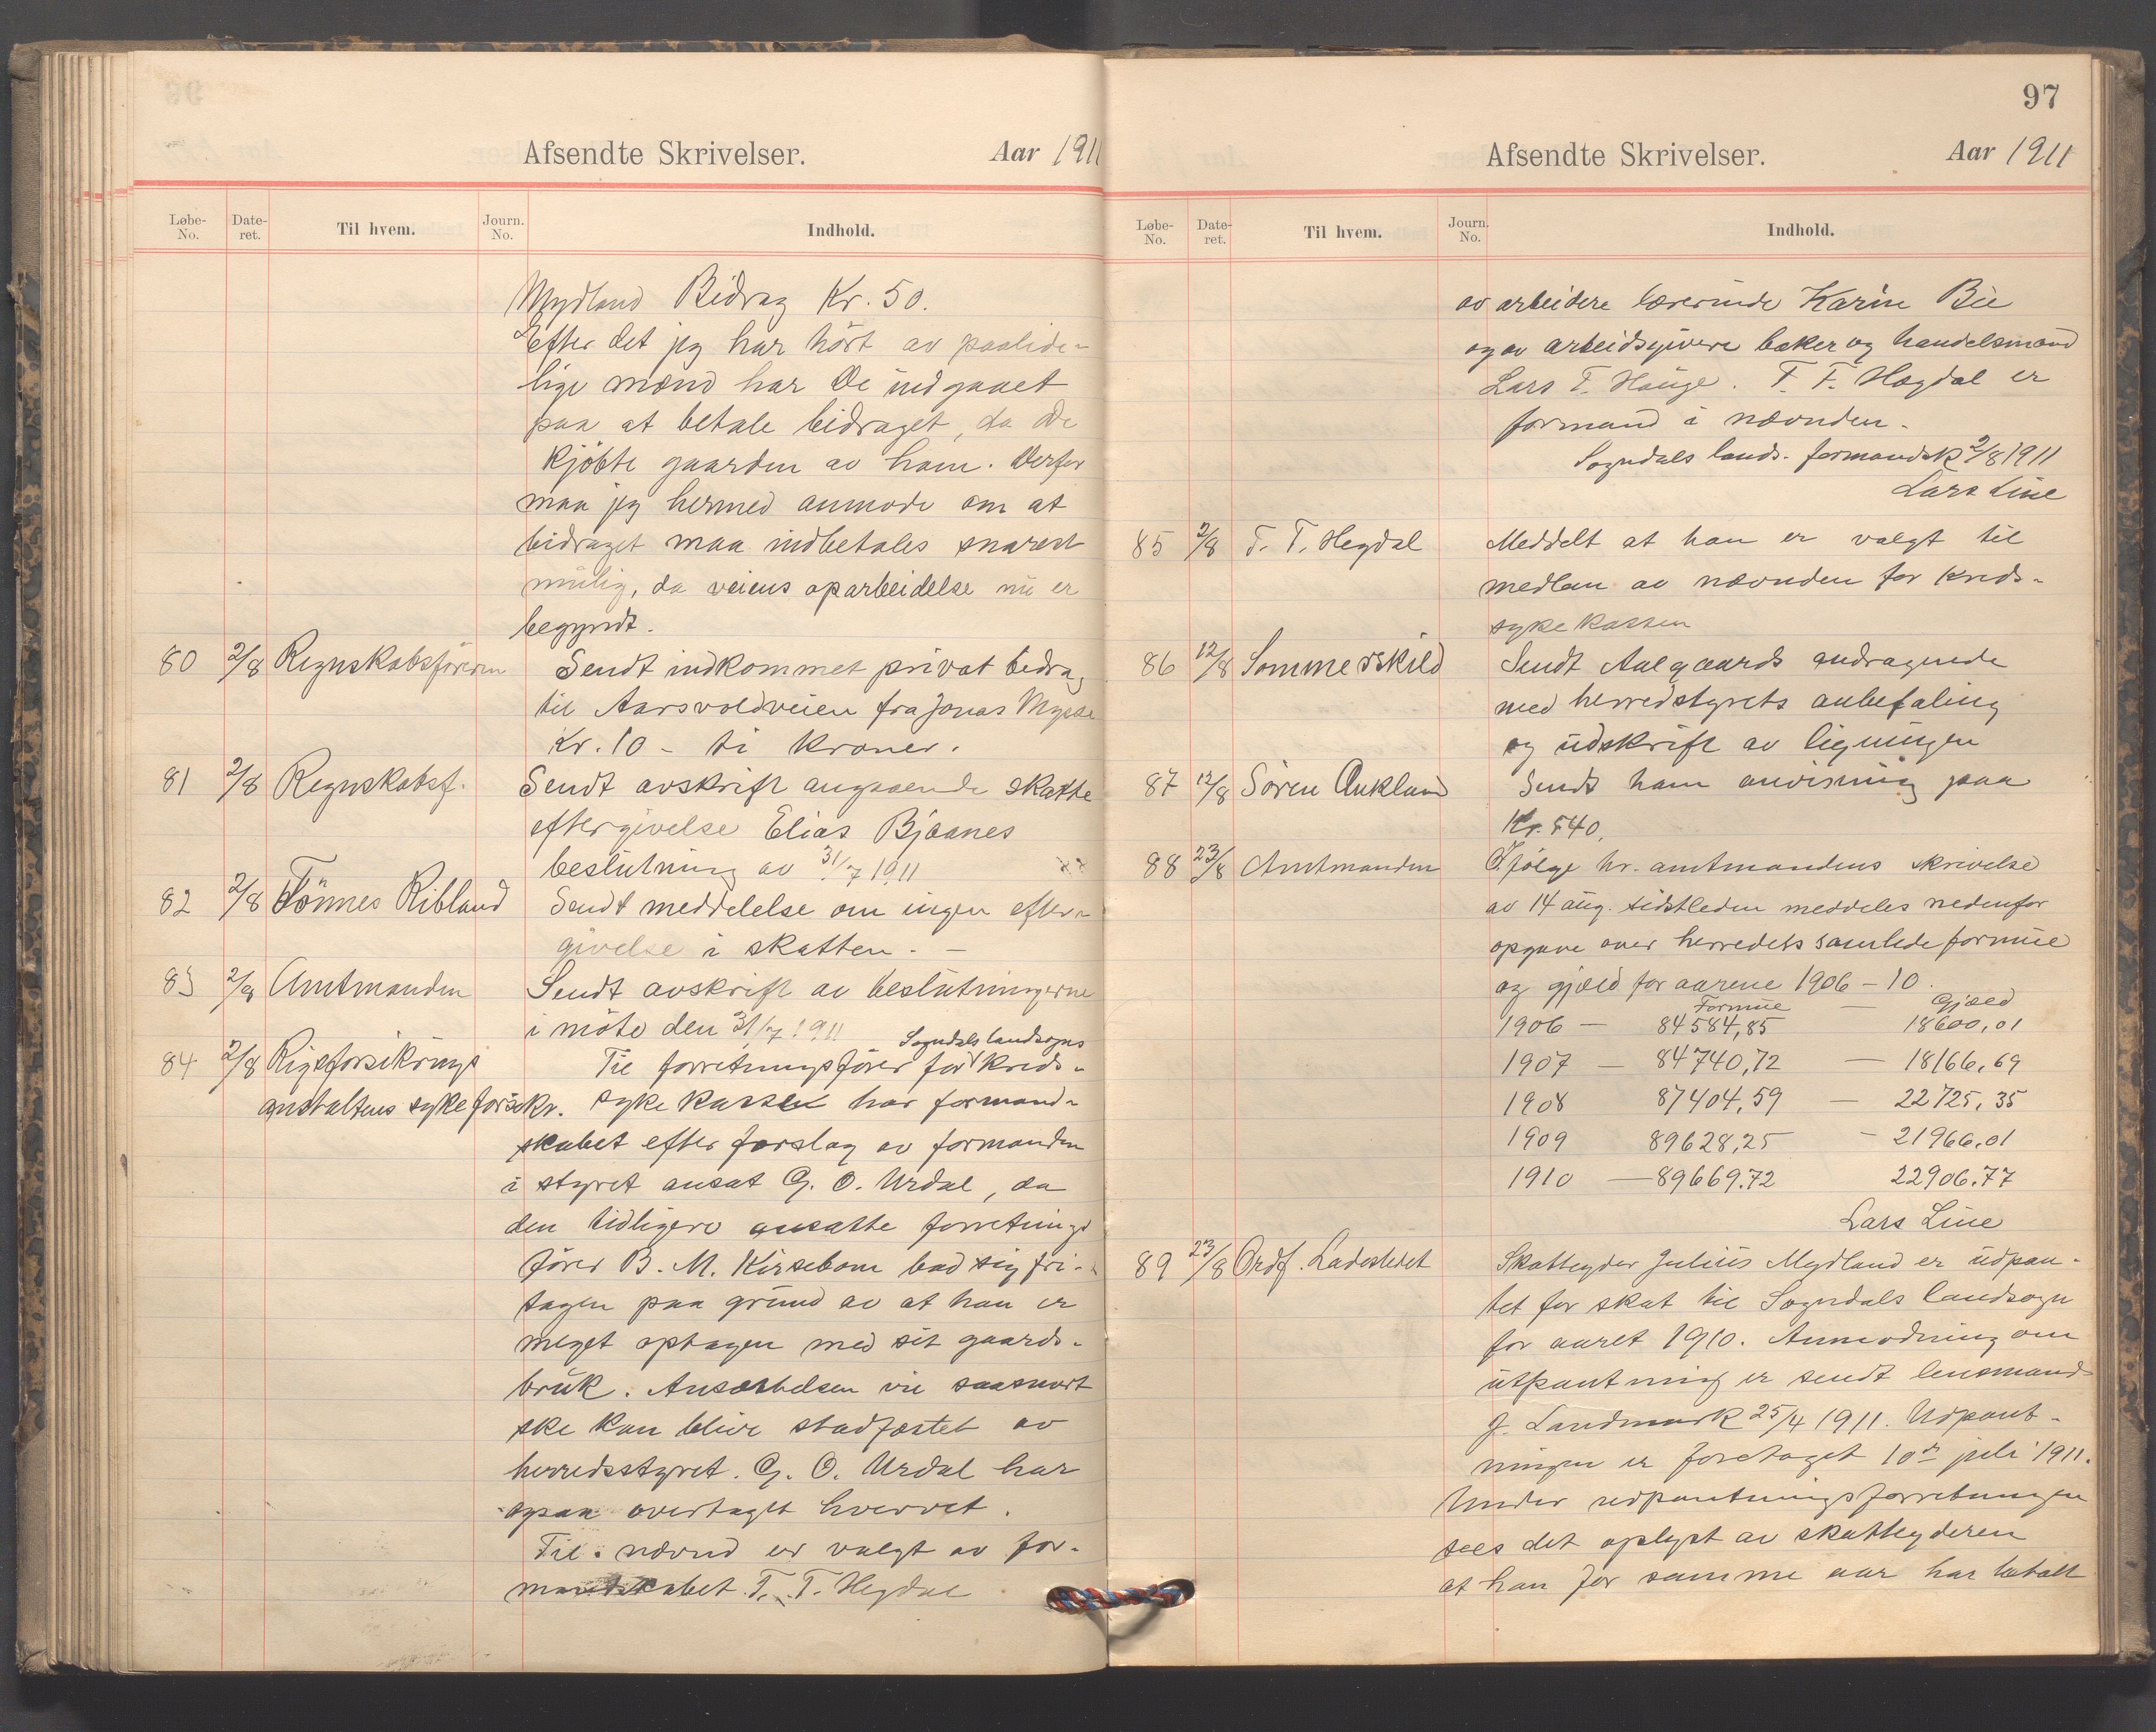 Afsendte Skrivelser. Aar 1911
Løbe-No. Date-ret. Til hvem. Journ. No. Indhold.
Mydland Bidrag Kr. 50.
Efter det jeg har hört av paalide-
lige mænd har De indgaaet
paa at betale bidraget, da De
kjöbte gaarden av ham. Derfor
maa jeg hermed anmode om at
bidraget maa indbetales snarest
mulig, da veiens oparbeidelse nu er
begyndt.
80 2/8 Regnskabsföreren Sendt indkommet privat bidrag
til Aarsvoldveien fra Jonas Mysse
Kr. 10 - ti kroner.
81 2/8 Regnskabsf. Sendt avskrift angaaende skatte
eftergivelse Elias Bjaanes
beslutning av 31/7 1911
82 2/8 Tönnes Ribland Sendt meddelelse om ingen efter-
givelse i skatten. -
83 2/8 Amtmanden Sendt avskrift av beslutningerne
i möte den 31/7 1911
84 2/8 Rigsforsikrings Til forretningsförer for Sogndals landsogns kreds-
anstaltens sykeforsikr. sykekasse har formand-
skabet efter forslag av formanden
i styret ansat G. O. Urdal, da
den tidligere ansatte forretnings
förer B. M. Kirsebom bad sig fri-
tagen paa grund av at han er
meget optagen med sit gaards-
bruk. Ansættelsen vil saasnart
ske kan blive stadfæstet av
herredsstyret. G. O. Urdal har
ogsaa overtaget hvervet.
Til nævnd er valgt av for-
mandskabet T. T. Hegdal
97
Afsendte Skrivelser. Aar 1911
Løbe-No. Date-ret. Til hvem. Journ. No. Indhold.
av arbeidere lærerinde Karin Bie
og av arbeidsgivere baker og handelsmand
Lars T. Hauge. T. T. Hægdal er
formand i nævnden.
Sogndals lands. formandsk 2/8 1911
Lars Line
85 2/8 T. T. Hegdal Meddelt at han er valgt til
medlem av nævnden for kreds-
sykekassen
86 12/8 Sommerskild Sendt Aalgaards andragende
med herredstyrets anbefaling
og udskrift av ligningen
87 12/8 Sören Aukland Sendt ham anvisning paa
Kr. 540.
88 23/8 Amtmanden Ifölge hr. amtmandens skrivelse
av 14 aug. sidstleden meddeles nedenfor
opgave over herredets samlede formue
og gjæld for aarene 1906 - 10.
Formue - Gjæld
1906 - 84584,85 18600,01
1907 - 84740,72 - 18166,69
1908 87404,59 - 22725,35
1909 89628,25 - 21966.01
1910 - 89669.72 22906.77
Lars Line
89 23/8 Ordf. Ladestedet Skatteyder Julius Mydland er udpan-
tet for skat til Sogndals landsogn
for aaret 1910. Anmodning om
utpantning er sendt lensmand
J. Landmark 25/4 1911. Udpant-
ningen er foretaget 10de juli 1911.
Under udpantningsforretningen
sees det oplyst av skatteyderen
at han for samme aar har betalt